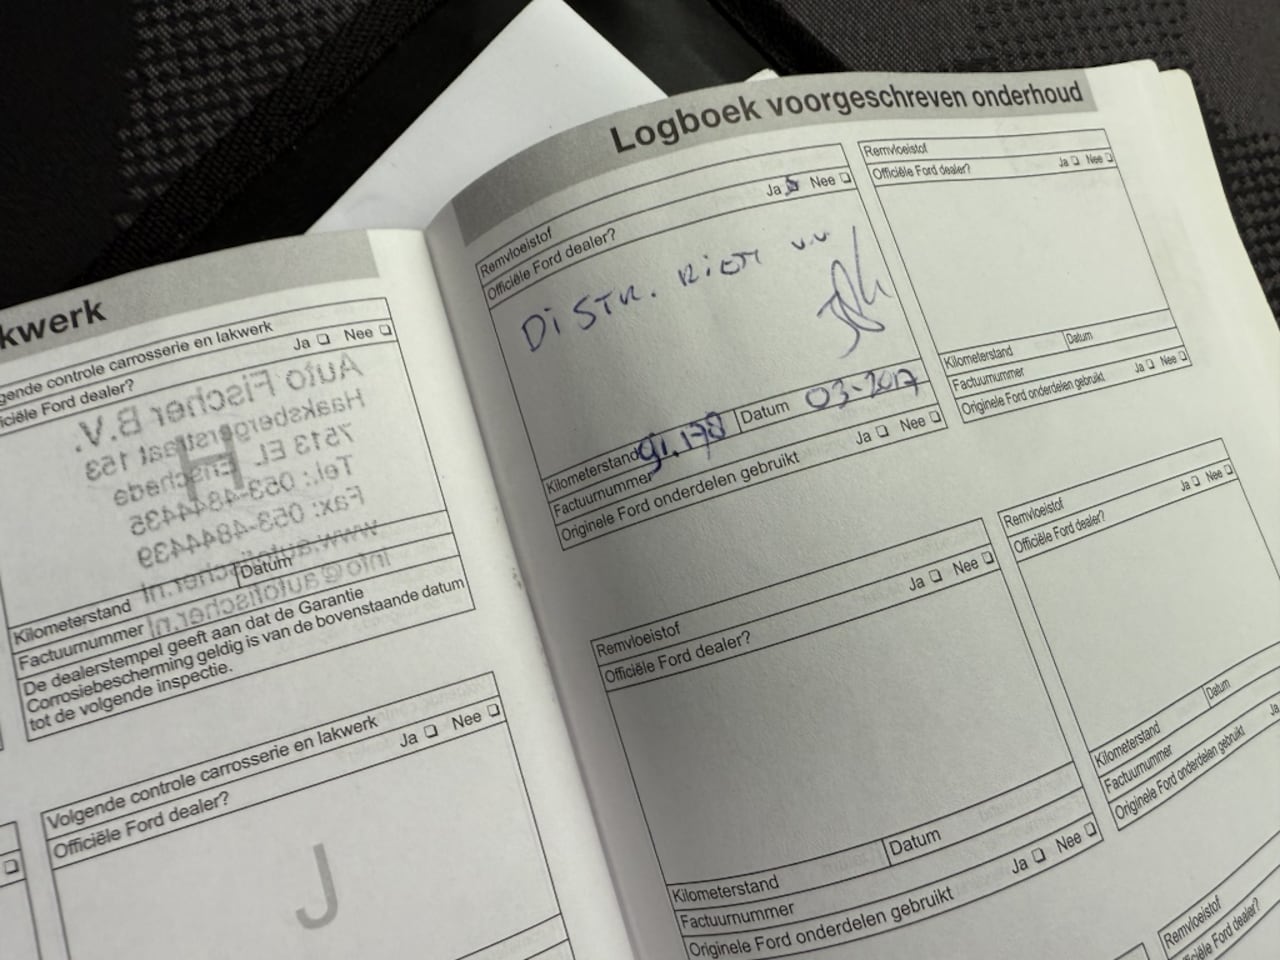 kwerk
gende controle carrosserie en lakwerk
ficiële Ford dealer?
Ja Nee
Auto Fischer B.V.
Haaksbergerstraat 153
7513 EL Enschede
H
Tel.: 053-4844435
Fax: 053-4844439
www.autofischer.nl
info@autofischer.nl
Kilometerstand
Datum
Factuurnummer
De dealerstempel geeft aan dat de Garantie
Corrosiebescherming geldig is van de bovenstaande datum
tot de volgende inspectie.
Volgende controle carrosserie en lakwerk
Officiële Ford dealer?
Ja Nee
J
Logboek voorgeschreven onderhoud
Remvloeistof
Officiële Ford dealer?
Ja Nee
DiSTR. RiEM
Kilometerstand 91.178
Datum 03-2017
Factuurnummer
Originele Ford onderdelen gebruikt
Ja Nee
Remvloeistof
Officiële Ford dealer?
Ja Nee
Kilometerstand
Datum
Factuurnummer
Originele Ford onderdelen gebruikt
Ja Nee
Remvloeistof
Officiële Ford dealer?
Ja Nee
Kilometerstand
Datum
Factuurnummer
Originele Ford onderdelen gebruikt
Ja Nee
Remvloeistof
Officiële Ford dealer?
Ja Nee
Kilometerstand
Datum
Factuurnummer
Originele Ford onderdelen gebruikt
Ja
Remvloeistof
ficiële Ford dealer?